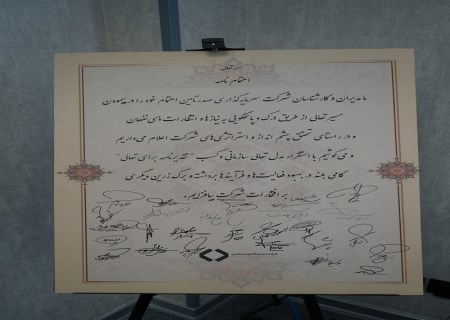 بسمه تعالی
اهتمام نامه
ما مدیران و کارشناسان شرکت سرمایه‌گذاری صدر تامین اهتمام خود را در پیمودن
مسیر تعالی از طریق درک و پاسخگویی به نیازها و انتظارات ذی‌نفعان
و در راستای تحقق چشم انداز و استراتژی‌های شرکت اعلام می‌داریم
و می‌کوشیم با استقرار مدل تعالی سازمانی و کسب "تقدیرنامه برای تعالی"
گامی بلند در بهبود فعالیت‌ها و فرآیندها برداشته و برگ زرین دیگری
بر افتخارات شرکت بیافزاییم.